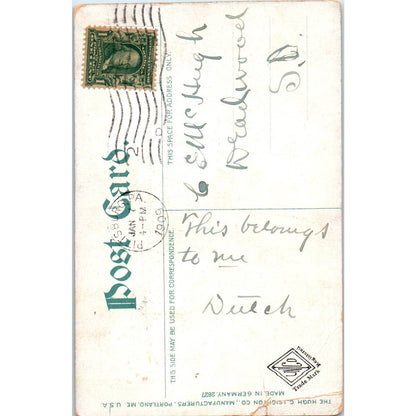 Post Card.
THIS SPACE FOR ADDRESS ONLY.
C E McHugh
Deadwood
S.D.
PA.
JAN
4-PM
1909
THIS SIDE MAY BE USED FOR CORRESPONDENCE
This belongs
to me
Dutch
THE HUGH C. LEIGHTON CO., MANUFACTURERS, PORTLAND, ME. U.S.A.
MADE IN GERMANY. 2827
Registered
Trade Mark